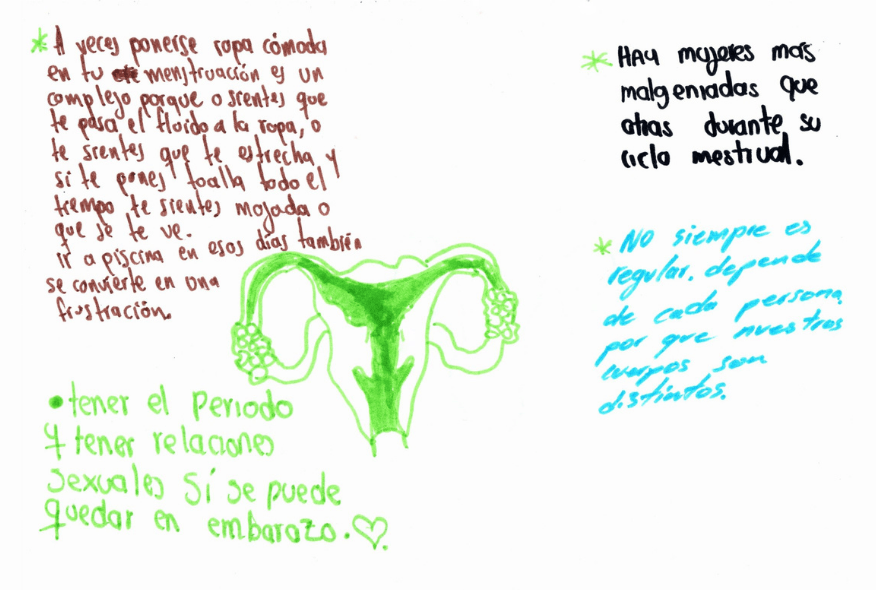 * A veces ponerse ropa cómoda
en tu menstruación es un
complejo porque o sientes que
te pasa el fluido a la ropa, o
te sientes que te estrecha y
si te pones toalla todo el
tiempo te sientes mojada o
que se te ve.
ir a piscina en esos días también
se convierte en una
frustración.
• tener el periodo
y tener relaciones
sexuales Sí se puede
quedar en embarazo. ♡
* HAY mujeres más
malgeniadas que
otras durante su
ciclo mestrual.
* NO siempre es
regular. depende
de cada persona
por que nuestros
cuerpos son
distintos.